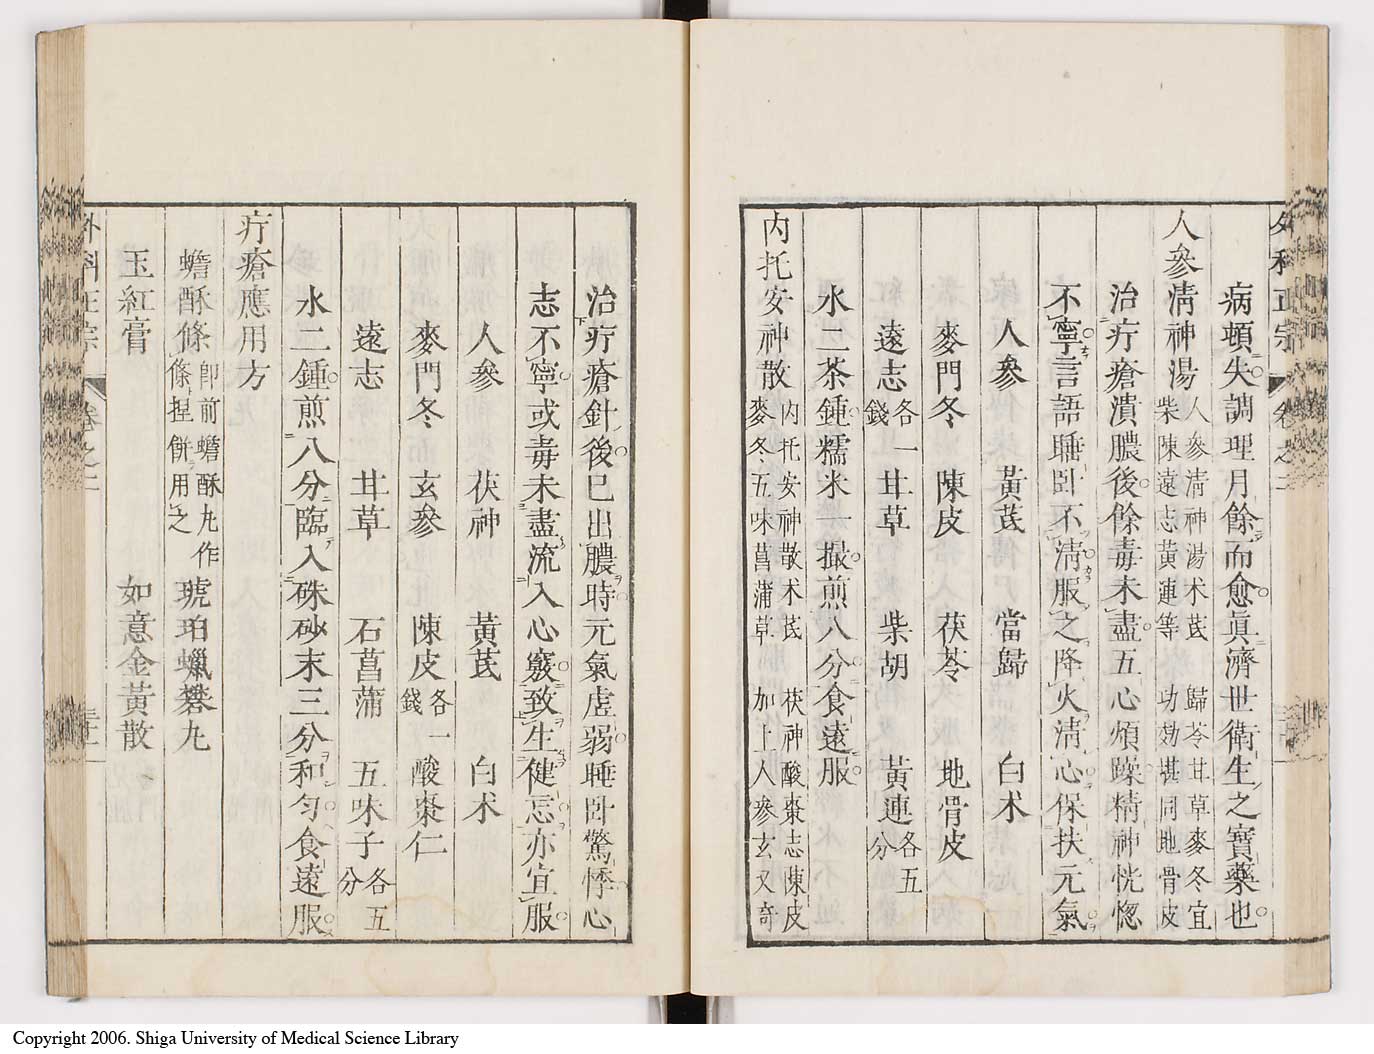 外科正宗 卷之二
病頓失調理月餘而愈眞濟世衛生之寶藥也
人參淸神湯 人參淸神湯朮芪 歸苓甘草麥冬宜
柴陳遠志黃連等 功効甚同地骨皮
治疔瘡潰膿後餘毒未盡五心煩躁精神恍惚
不寧言語睡臥不淸服之降火淸心保扶元氣
人參 黃芪 當歸 白朮
麥門冬 陳皮 茯苓 地骨皮
遠志各一錢 甘草 柴胡 黃連各五分
水二茶鍾糯米一撮煎八分食遠服
內托安神散 內托安神散朮芪 茯神酸棗志陳皮
麥冬五味菖蒲草 加上人參玄又奇
治疔瘡針後已出膿時元氣虛弱睡臥驚悸心
志不寧或毒未盡流入心竅致生健忘亦宜服
人參 茯神 黃芪 白朮
麥門冬 玄參 陳皮各一錢 酸棗仁
遠志 甘草 石菖蒲 五味子各五分
水二鍾煎八分臨入硃砂末三分和勻食遠服
疔瘡應用方
蟾酥條 卽前蟾酥丸作條捏餅用之 琥珀蠟礬丸
玉紅膏 如意金黃散
外科正宗 卷之二